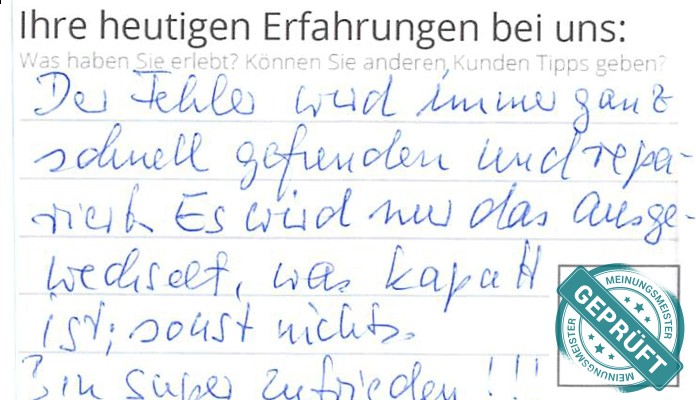 Ihre heutigen Erfahrungen bei uns:
Was haben Sie erlebt? Können Sie anderen Kunden Tipps geben?
Der Fehler wird immer ganz
schnell gefunden und repa-
riert. Es wird nur das ausge-
wechselt, was kaputt
ist, sonst nichts.
Bin super zufrieden!!!
MEINUNGSMEISTER
GEPRÜFT
MEINUNGSMEISTER